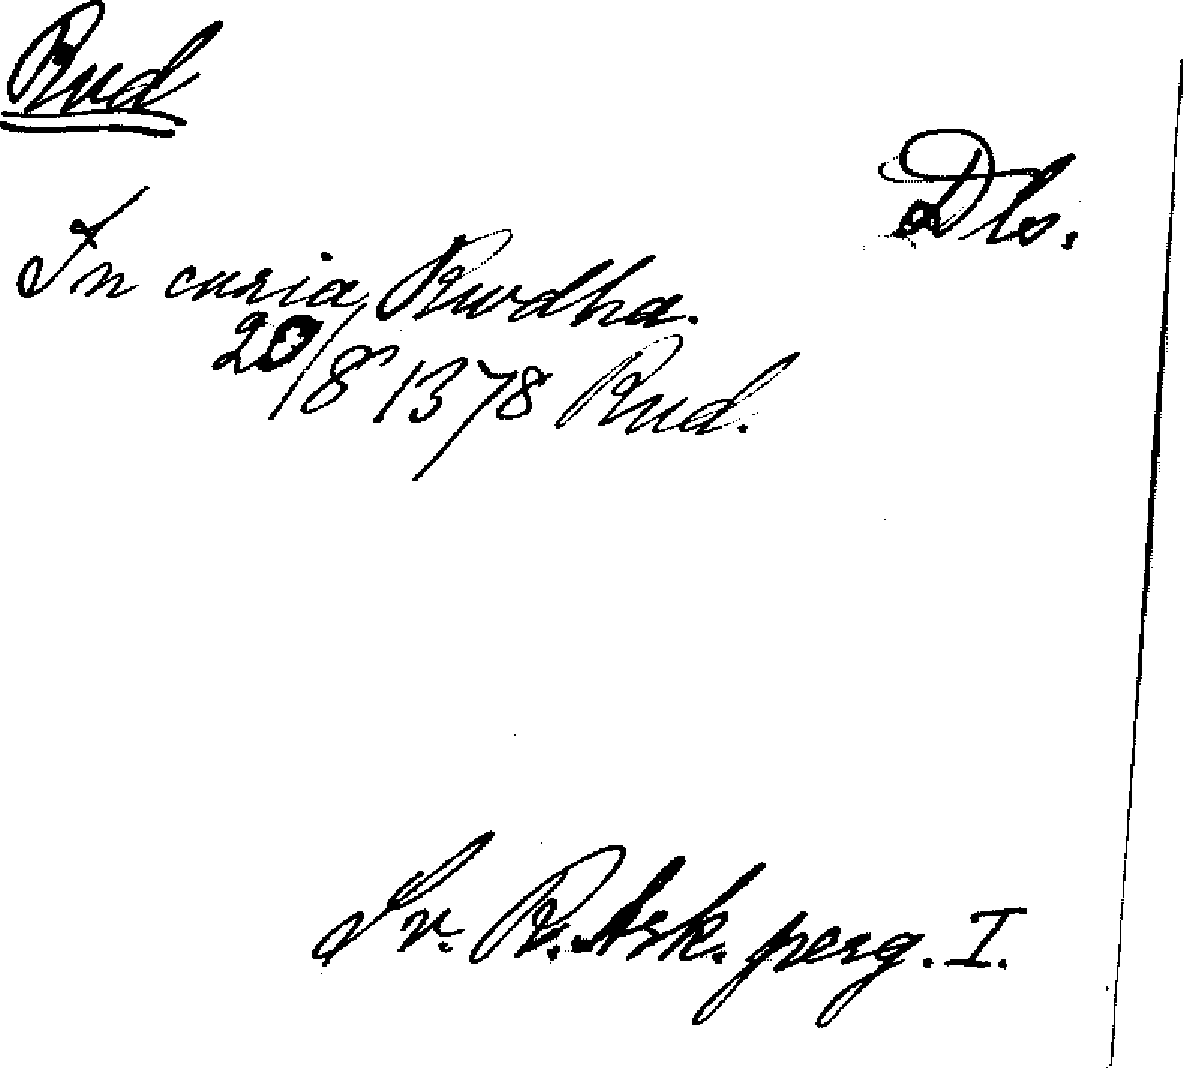 Rud
Dls.
In curia Rwdha.
20/8 1378 Rud.
Sv. R. Ask. perg. I.